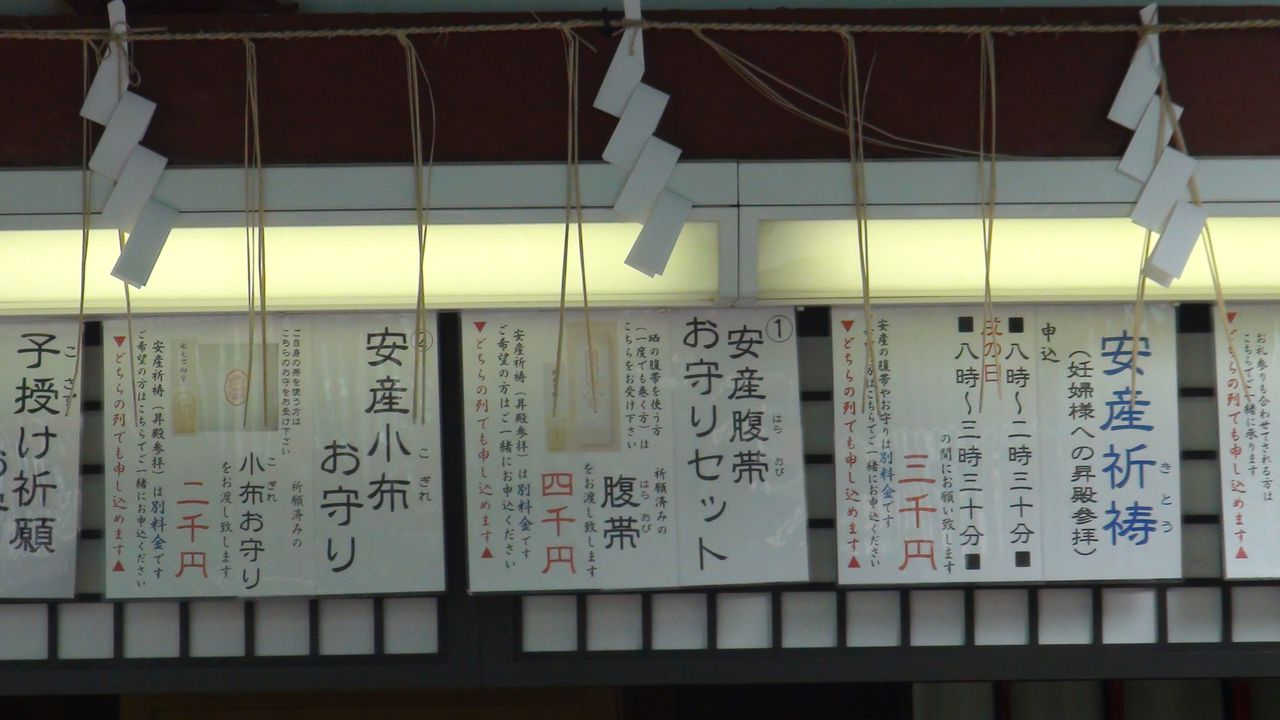 お札参りも合わせてされる方は
こちらでご一緒に承ります
▼どちらの列でも申し込めます▲
安産祈祷
きとう
(妊婦様への昇殿参拝)
申込
■八時~二時三十分■
戌の日
■八時~三時三十分■
の間にお願い致します
三千円
安産の腹帯やお守りは別料金です
▼どちらの列でも申し込めます▲
①
安産腹帯
はらおび
お守りセット
晒の腹帯を使う方
(一度でも巻く方)は
こちらをお受け下さい
祈願済みの
腹帯
はらおび
をお渡し致します
四千円
安産祈祷(昇殿参拝)は別料金です
ご希望の方はご一緒にお申込ください
▼どちらの列でも申し込めます▲
②
安産小布
こぎれ
お守り
ご自身の帯を使う方は
こちらのお守をお受け下さい
祈願済みの
小布お守り
こぎれ
をお渡し致します
二千円
安産祈祷(昇殿参拝)は別料金です
ご希望の方はこちらでご一緒にお申込ください
▼どちらの列でも申し込めます▲
子授け祈願
こさず